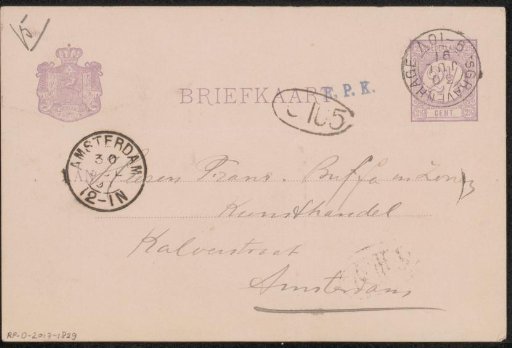 BRIEFKAART
F. P. K.
165
'S GRAVENHAGE
CENT
AMSTERDAM
30
12-1N
AAN Heeren Frans. Buffa en Zonen
Kunsthandel
Kalverstraat
Amsterdam
RP-D-2017-1859